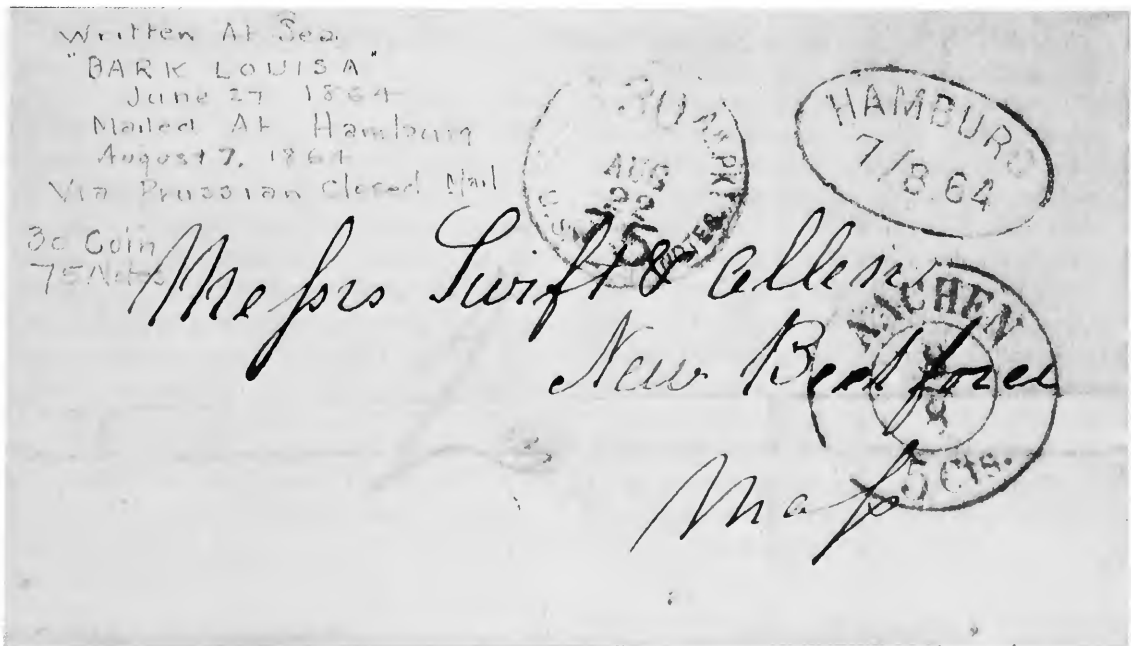 Written At Sea
"BARK LOUISA"
June 27 1864
Mailed At Hamburg
August 7, 1864
Via Prussian Closed Mail
30 Coin
75 Notes
30
AM. PKT.
AUG
HAMBURG
7/8.64
Messrs Swift & Allen
New Bedford
Mass
AACHEN
5 Cts.